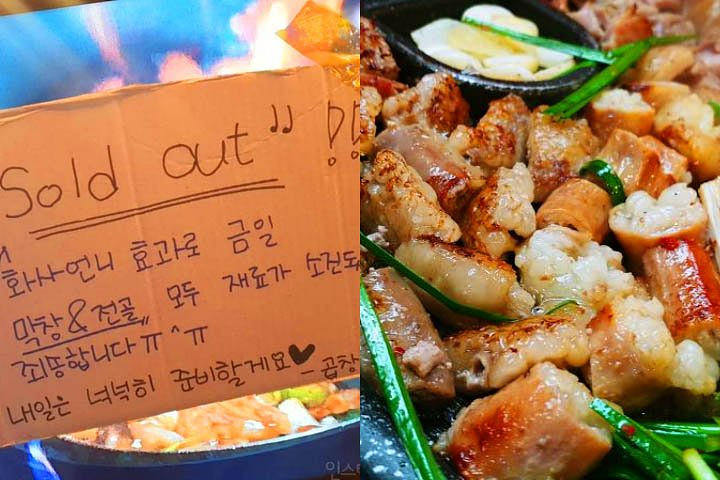 Sold out" !!
"화사언니 효과로 금일
막창&전골" 모두 재료가 소진되
죄송합니다ㅠ^ㅠ
내일은 넉넉히 준비할게요♥_곱창